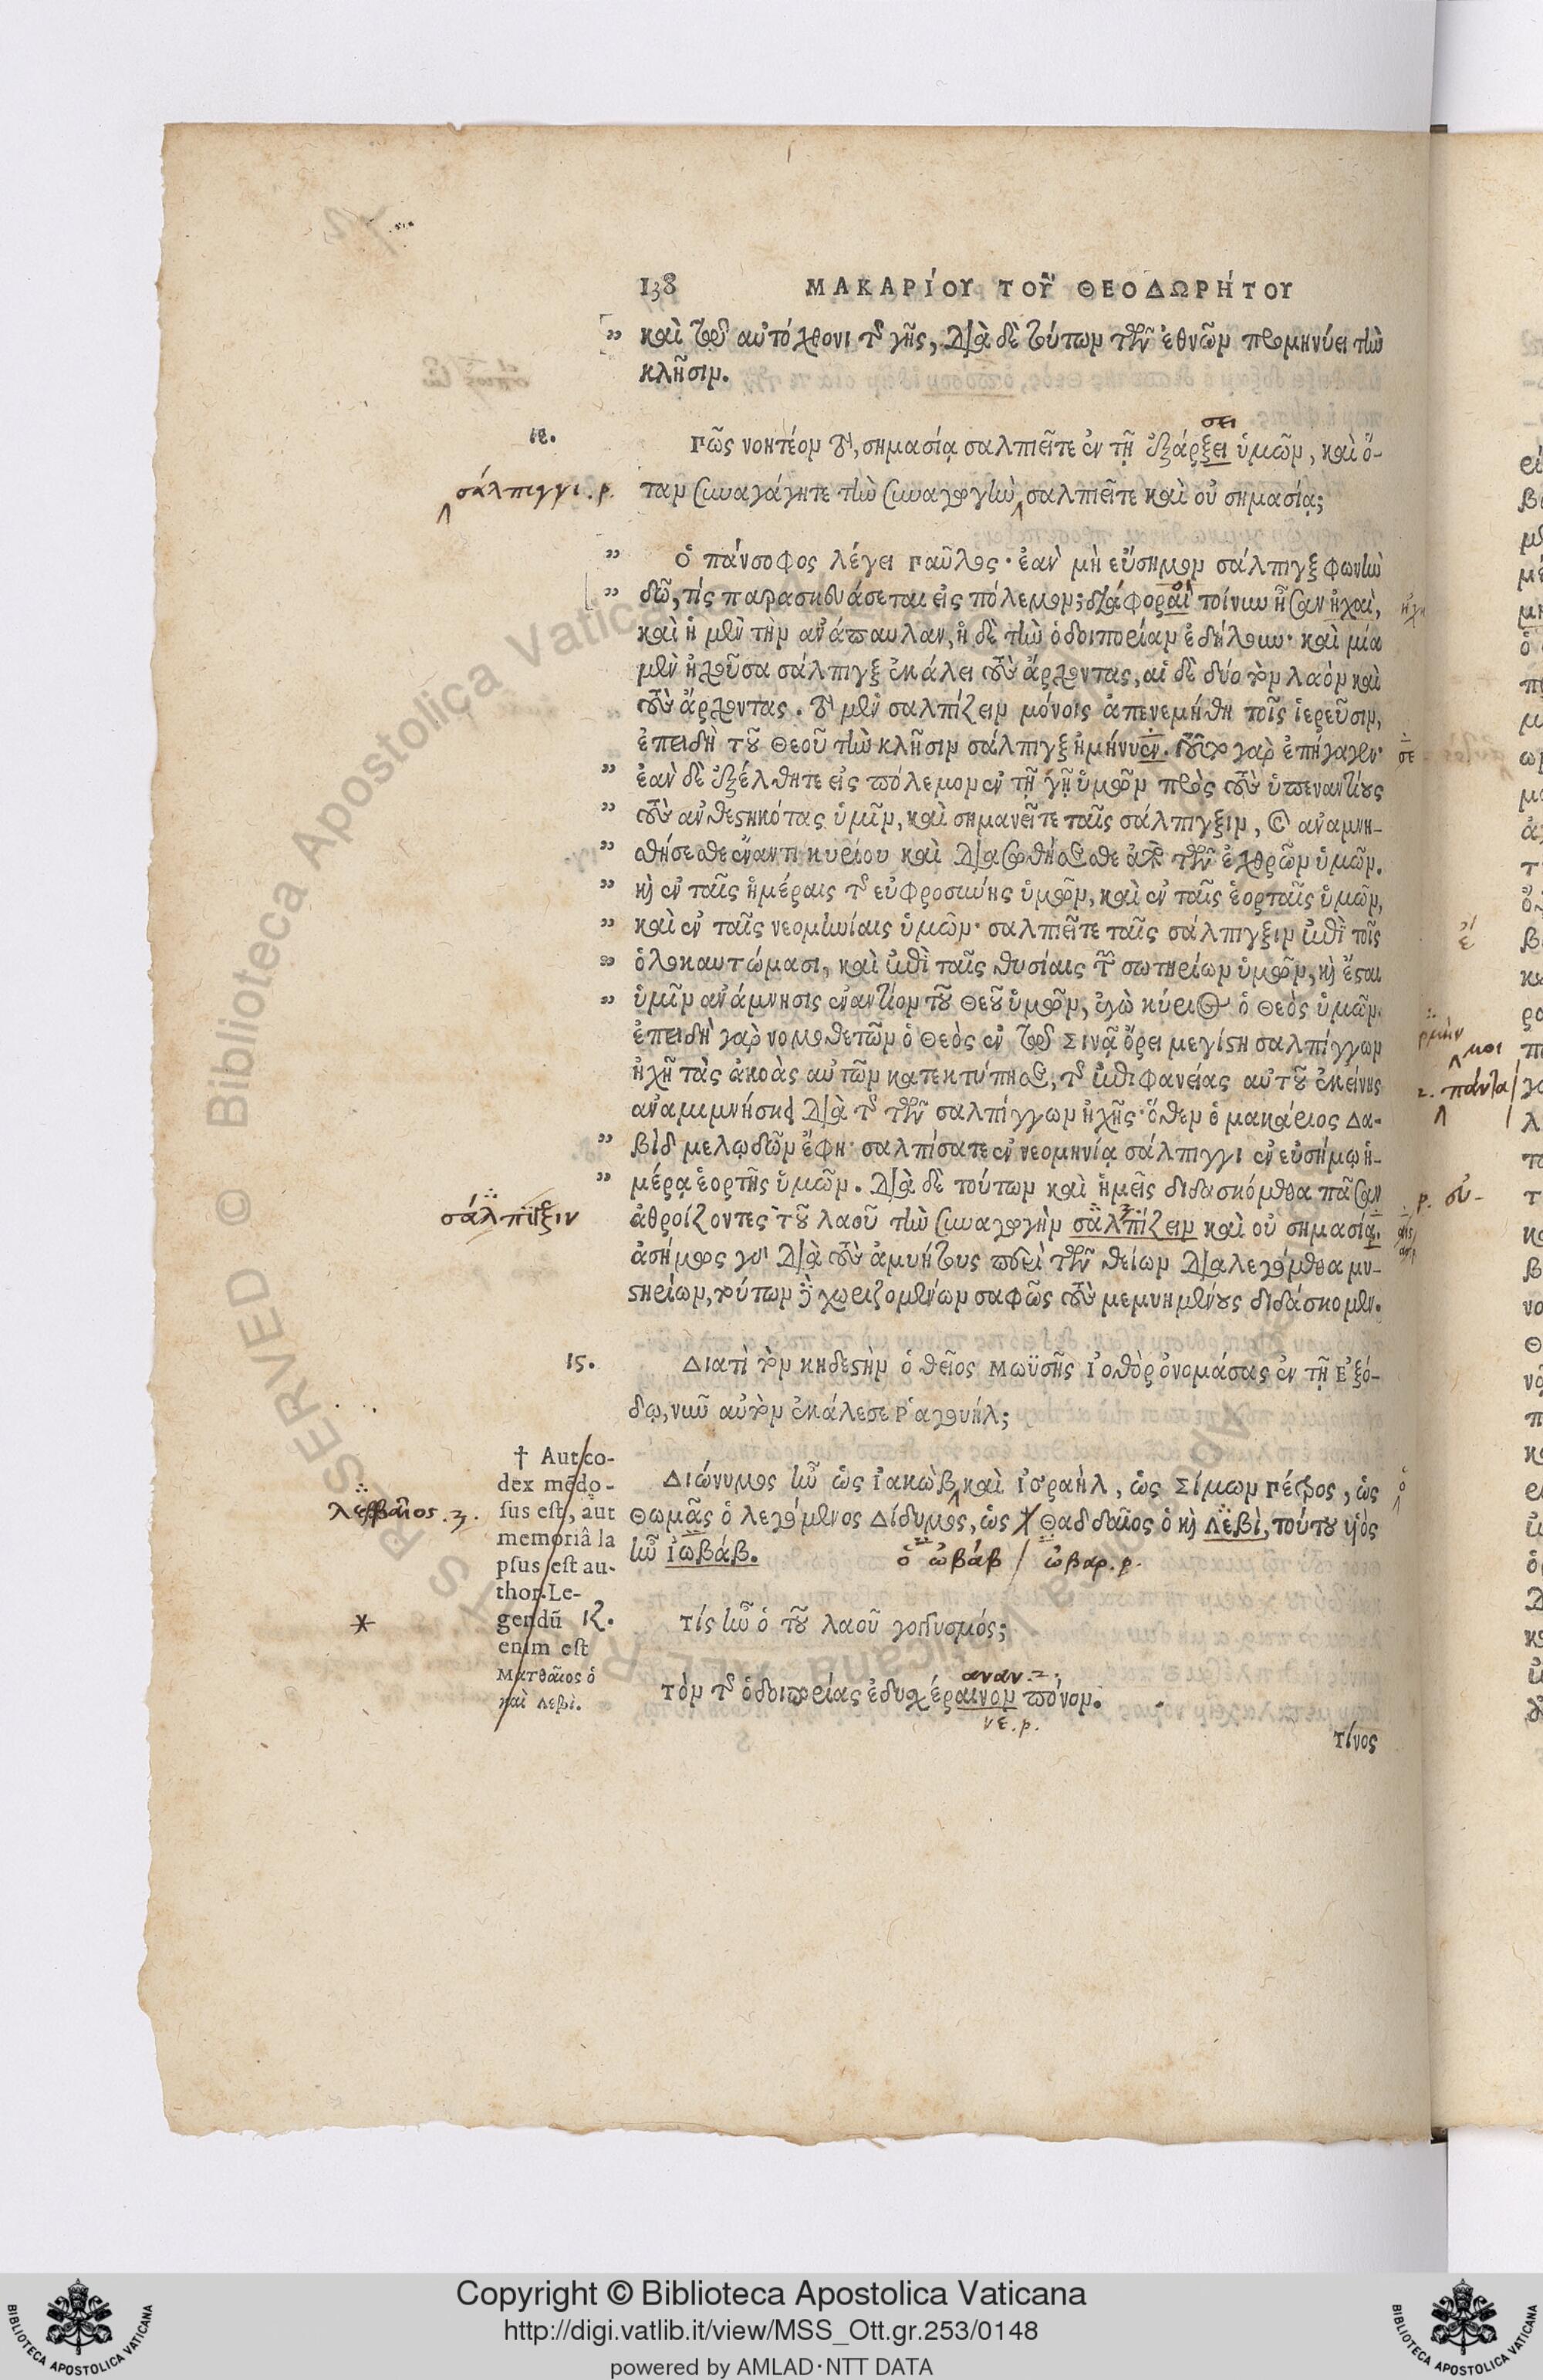 138 ΜΑΚΑΡίΟΥ ΤΟῦ ΘΕΟΔΩΡΉΤΟΥ
„ καὶ τῷ αὐτόχθονι τῆς γῆς, διὰ δὲ τούτων τῶν ἐθνῶν προμηνύει τὴν
κλῆσιν.
σει
ιε. Πῶς νοητέον τὸ, σημασίᾳ σαλπιεῖτε ἐν τῇ ἐξάρξει ὑμῶν, καὶ ὅ-
σάλπιγγι. p. ταν συναγάγητε τὴν συναγωγὴν σαλπιεῖτε καὶ οὐ σημασίᾳ;
„ Ὁ πάνσοφος λέγει Παῦλος· ἐὰν μὴ εὔσημον σάλπιγξ φωνὴν
„ δῶ, τίς παρασκευάσεται εἰς πόλεμον; διάφοραι τοίνυν ἦσαν ἠχαὶ,
καὶ ἡ μὲν τὴν ἀνάπαυλαν, ἡ δὲ τὴν ὁδοιπορίαν ἐδήλουν· καὶ μία
μὲν ἠχοῦσα σάλπιγξ ἐκάλει τοὺς ἄρχοντας, αἱ δὲ δύο τὸν λαὸν καὶ
τοὺς ἄρχοντας. τὸ μὲν σαλπίζειν μόνοις ἀπενεμήθη τοῖς ἱερεῦσιν,
ἐπειδὴ τοῦ Θεοῦ τὴν κλῆσιν σάλπιγξ ἠμήνυεν. τοῦτο γὰρ ἐπήγαγεν· σε
„ ἐὰν δὲ ἐξέλθητε εἰς πόλεμον ἐν τῇ γῇ ὑμῶν πρὸς τοὺς ὑπεναντίους
„ τοὺς ἀνθεστηκότας ὑμῖν, καὶ σημανεῖτε ταῖς σάλπιγξιν, καὶ ἀναμνη-
„ σθήσεσθε ἔναντι κυρίου καὶ διασωθήσεσθε ἀπὸ τῶν ἐχθρῶν ὑμῶν.
„ καὶ ἐν ταῖς ἡμέραις τῆς εὐφροσύνης ὑμῶν, καὶ ἐν ταῖς ἑορταῖς ὑμῶν,
„ καὶ ἐν ταῖς νεομηνίαις ὑμῶν· σαλπιεῖτε ταῖς σάλπιγξιν ἐπὶ τοῖς
„ ὁλοκαυτώμασι, καὶ ἐπὶ ταῖς θυσίαις τῶν σωτηρίων ὑμῶν, καὶ ἔσται
„ ὑμῖν ἀνάμνησις ἐναντίον τοῦ Θεοῦ ὑμῶν, ἐγὼ κύριος ὁ Θεὸς ὑμῶν.
ἐπειδὴ γὰρ νομοθετῶν ὁ Θεὸς ἐν τῷ Σινᾷ ὄρει μεγίστη σαλπίγγων
ἠχῇ τὰς ἀκοὰς αὐτῶν κατεκτύπησε, τῆς ἐπιφανείας αὐτοῦ ἐκείνης
ἀναμιμνήσκει διὰ τῆς τῶν σαλπίγγων ἠχῆς· ὅθεν ὁ μακάριος Δα-
„ βὶδ μελῳδῶν ἔφη· σαλπίσατε ἐν νεομηνίᾳ σάλπιγγι ἐν εὐσήμῳ ἡ-
„ μέρᾳ ἑορτῆς ὑμῶν. διὰ δὲ τούτων καὶ ἡμεῖς διδασκόμεθα πᾶσαν
σάλπιγξιν ἀθροίζοντες τοῦ λαοῦ τὴν συναγωγὴν σαλπίζειν καὶ οὐ σημασία.
ἀσήμως γὰρ διὰ τοὺς ἀμυήτους περὶ τῶν θείων διαλεγόμεθα μυ-
στηρίων, τούτων δὲ χωριζομένων σαφῶς τοὺς μεμυημένους διδάσκομεν.
15. Διατὶ τὸν κηδεστὴν ὁ θεῖος Μωϋσῆς Ἰοθὸρ ὀνομάσας ἐν τῇ Ἐξό-
δῳ, νῦν αὐτὸν ἐκάλεσε Ῥαγουήλ;
Διώνυμος ἦν ὡς Ἰακὼβ καὶ Ἰσραὴλ, ὡς Σίμων Πέτρος, ὡς
Θωμᾶς ὁ λεγόμενος Δίδυμος, ὡς Θαδδαῖος ὁ καὶ Λεβὶ, τούτου υἱὸς
ἦν Ἰωβάβ. ὁ ὠβάβ / ὠβαρ. p.
λεββαῖος. 3.
† Aut co-
dex mēdo-
sus est, aut
memoriâ la
psus est au-
thor. Le-
gendũ
enim est
Ματθαῖος ὁ
καὶ Λεβὶ.
*
ιζ. Τίς ἦν ὁ τοῦ λαοῦ γογγυσμός;
αναν. 2.
Τὸν τῆς ὁδοιπορίας ἐδυσχέραινον πόνον.
νε. p.
Τίνος
Copyright © Biblioteca Apostolica Vaticana
http://digi.vatlib.it/view/MSS_Ott.gr.253/0148
powered by AMLAD·NTT DATA
BIBLIOTECA APOSTOLICA VATICANA
BIBLIOTECA APOSTOLICA VATICANA